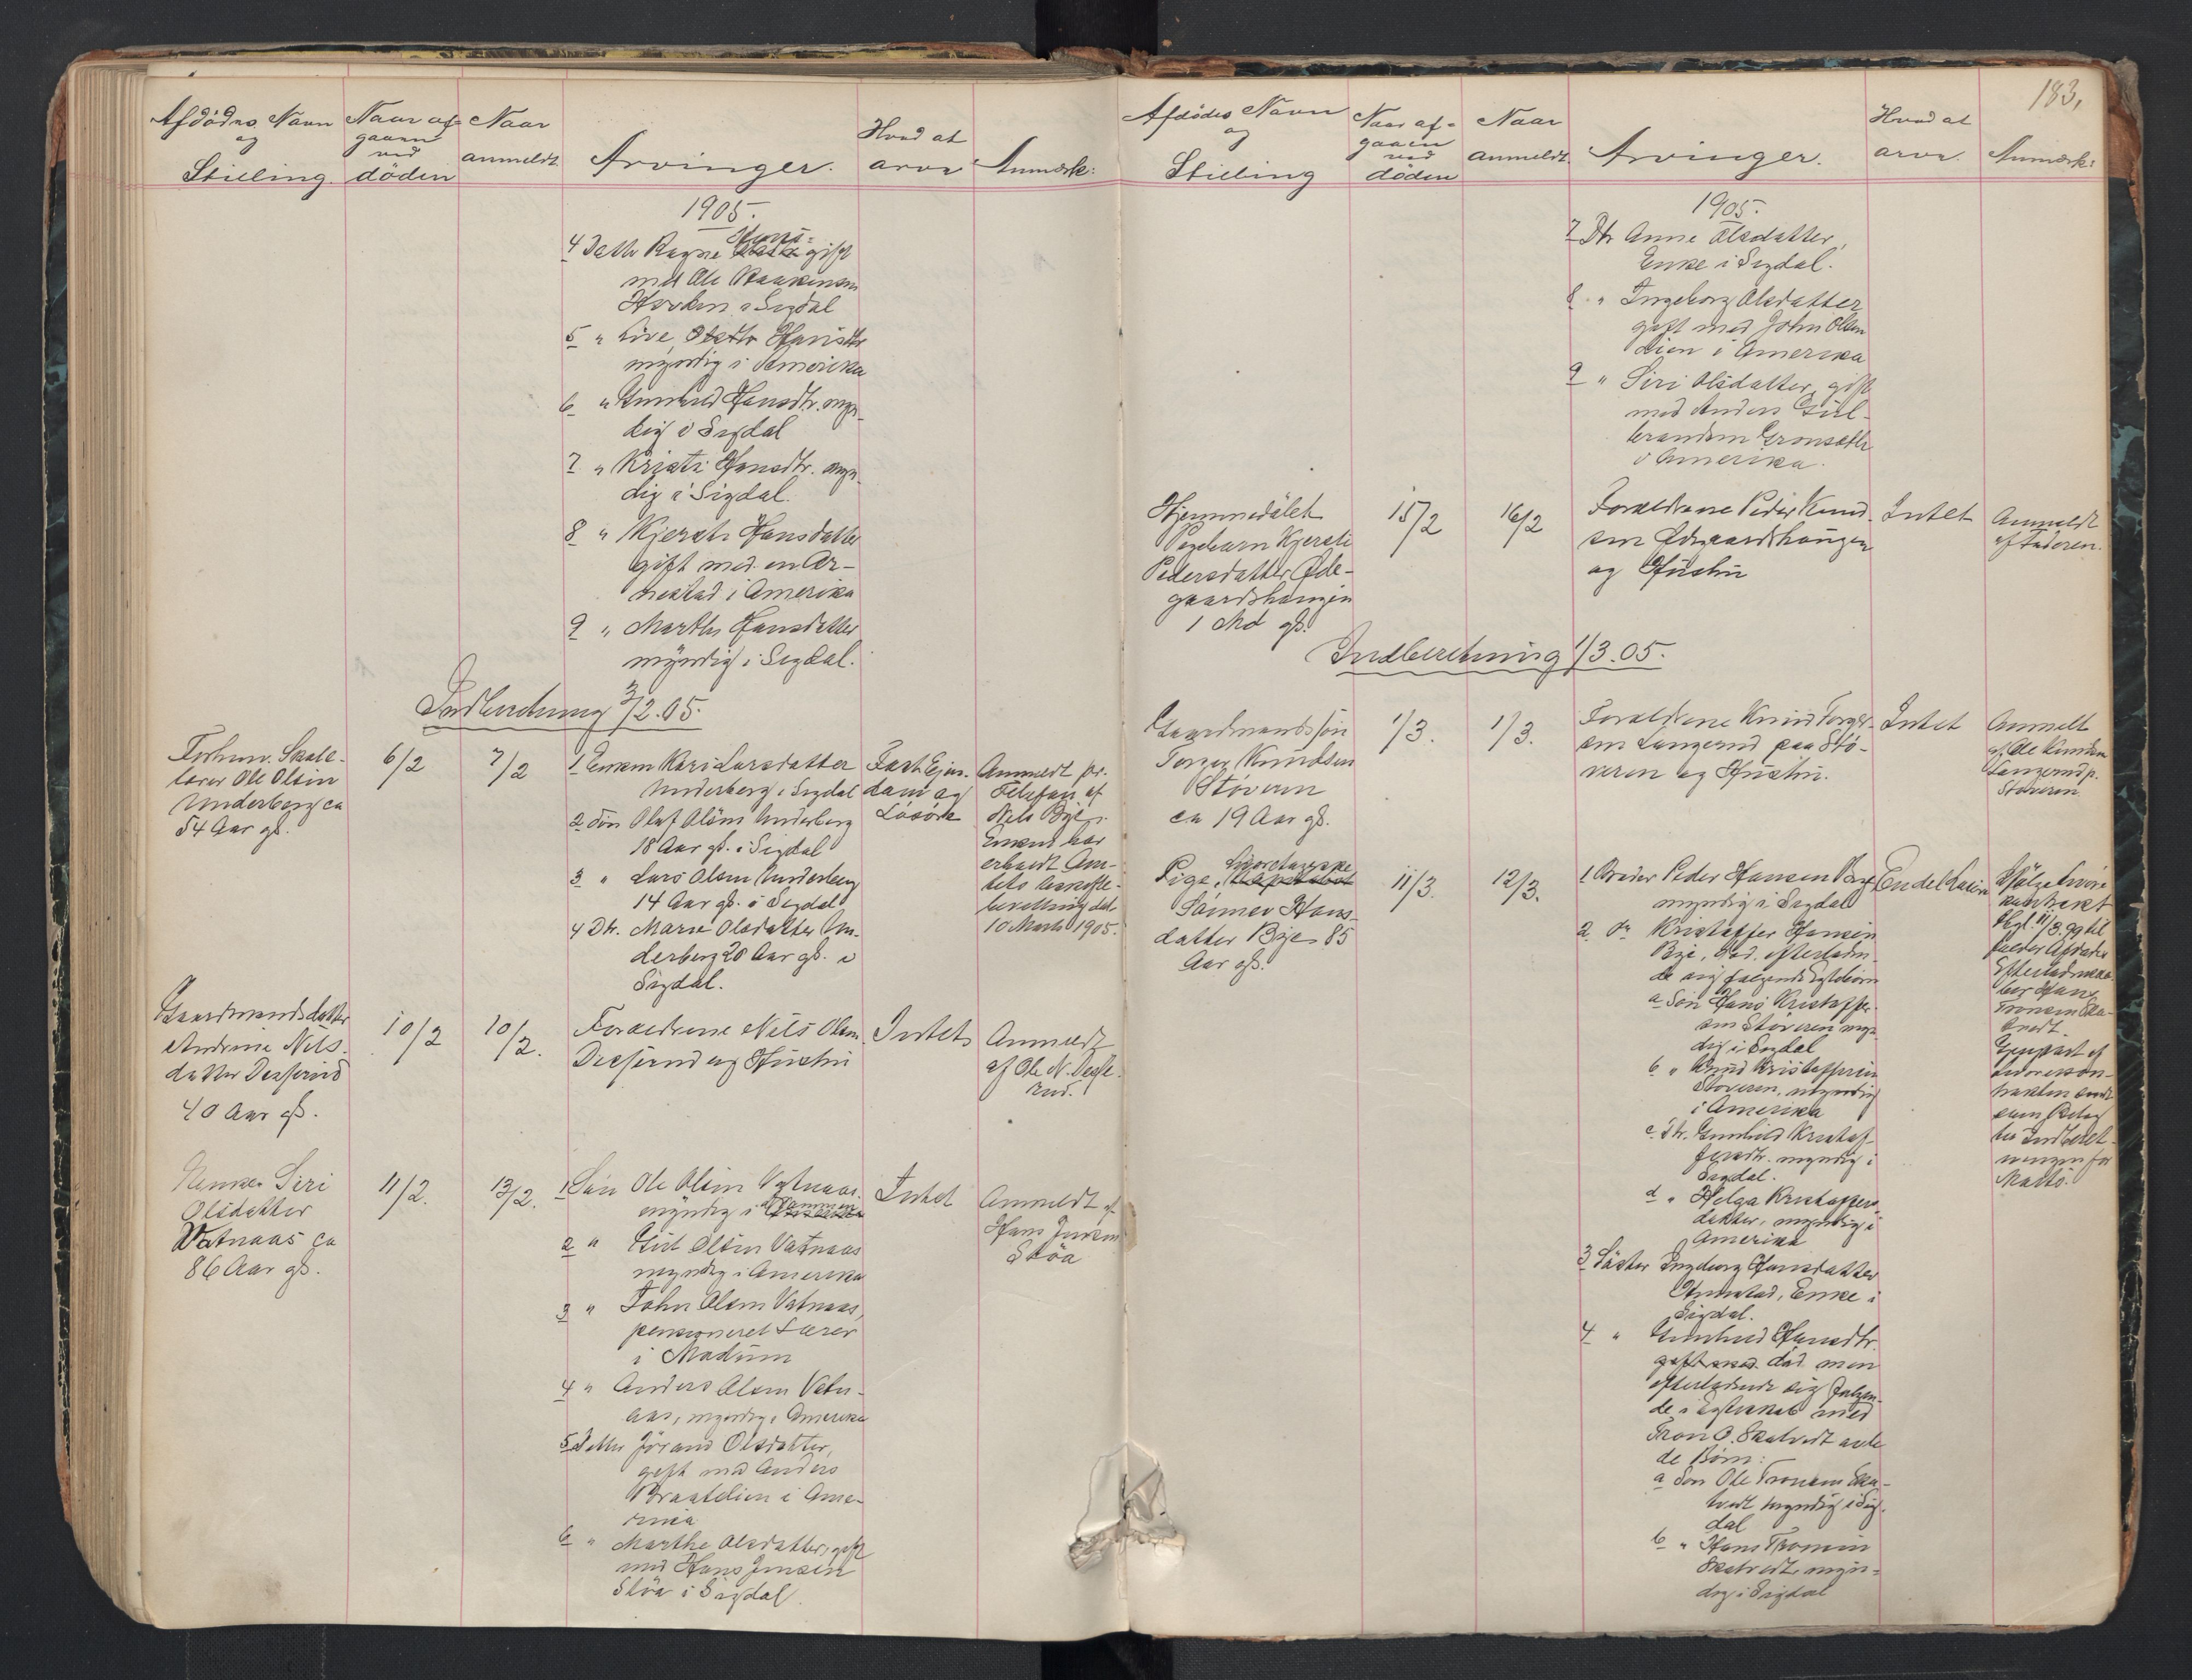 Afdødes Navn
og
Stilling.
Naar af-
gaaen
ved
døden
Naar
anmeldt
Arvinger.
Hvad at
arve
Anmærk:
1905.
4 Datter Ragne Hans- gift
med Ole
i Sigdal
5 " Live Hansdtr
myndig i Amerika
6 " Gunhild Hansdtr. myn-
dig i Sigdal
7 " Kristi Hansdtr. myn-
dig i Sigdal.
8 " Kjersti Hansdatter
gift med en Ar-
nestad i Amerika
9 " Marthe Hansdatter
myndig i Sigdal.
Indberetning 3/2.05.
Forhenv. Skole-
lærer Ole Olsen
Underberg ca
54 Aar gl.
6/2
7/2
1 Enken Kari Larsdatter
Underberg i Sigdal
2 Søn Olaf Olsen Underberg
18 Aar gl. i Sigdal
3 " Lars Olsen Underberg
14 Aar gl. i Sigdal
4 Dtr. Marie Olsdatter Un-
derberg 20 Aar gl. i
Sigdal.
Fast Ejen-
dom og
Løsøre
Anmeldt pr.
Telefon af
Nils Bye.
Enken har
erholdt Am-
tets uskifte-
bevilling dat.
10 Marts 1905.
Gaardmandsdatter
Andrine Nils-
datter
40 Aar gl.
10/2
10/2.
Forældrene Nils Olsen
og Hustru
Intet
Anmeldt
af Ole N.
rud.
Enke Siri
Olsdatter
Vatnaas ca
86 Aar gl.
11/2.
13/2.
1 Søn Ole Olsen Vatnaas.
myndig i Drammen
2 " Olsen Vatnaas
myndig i Amerika
3 " John Olsen Vatnaas,
pensioneret Lærer
i Modum
4 " Anders Olsen Vatn-
aas, myndig i Amerika
5 Datter Jörand Olsdatter,
gift med Anders
Braatelien i Ame-
rika
6 " Marthe Olsdatter, gift
med Hans Jensen
Støa i Sigdal.
Intet
Anmeldt af
Hans Jensen
Støa
183.
Afdødes Navn
og
Stilling
Naar af-
gaaen
ved
døden
Naar
anmeldt.
Arvinger.
Hvad at
arve.
Anmærk:
1905.
7 Dtr Anne Olsdatter,
Enke i Sigdal.
8 " Ingeborg Olsdatter
gift med John Olsen
Lien i Amerika
9 " Siri Olsdatter, gift
med Anders Gul-
brandsen Grønsæth
i Amerika.
Hjemmedøbt
Pigebarn Kjersti
Pedersdatter Øde-
gaardshaugen
1 Md gl.
15/2
16/2
Forældrene Peder Knud-
sen Ødegaardshaugen
og Hustru
Intet
Anmeldt
af Faderen.
Indberetning 1/3.05.
Gaardmandssøn
Torger Knudsen
Støveren
ca 19 Aar gl.
1/3.
1/3.
Forældrene Knud Torger-
sen Langerud paa Stø-
veren og Hustru.
Intet
Anmeldt
af Ole Knudsen
Langerud p.
Støveren
Pige,
Hans-
datter Bye 85
Aar gl.
11/3.
12/3.
1 Broder Peder Hansen Bye
myndig i Sigdal
2 do Kristoffer Hansen
Bye, død, efterladen-
de sig følgende Egtebørn
a Søn Hans Kristoffer-
sen Støveren myn-
dig i Sigdal
b " Knud Kristoffersen
Støveren, myndig
i Amerika
c Dtr. Gunhild Kristof-
fersdtr. myndig i
Sigdal.
d " Helga Kristoffers-
datter, myndig i
Amerika
3 Søster Ingeborg Hansdatter
Enke i
Sigdal.
4 " Gunhild Hansdtr.
gift med død men
efterladende sig følgen-
de i Egteskab med
Tron O. Skatvedt avle-
de Børn:
a Søn Ole Tronsen Ska-
tvedt myndig i Sig-
dal
b " Hans Tronsen
Skatvedt, myn-
dig i Sigdal
En del Løsøre
Ifølge Livøre
kontrakt
thgl. 11/3.99 til
falder Afdødes
Efterladenska-
ber Hans
Tronsen Ska-
tvedt.
Gjenpart af
Livøreskon-
trakten sendt
som Bilag
til Indberet-
ningen for
Marts.